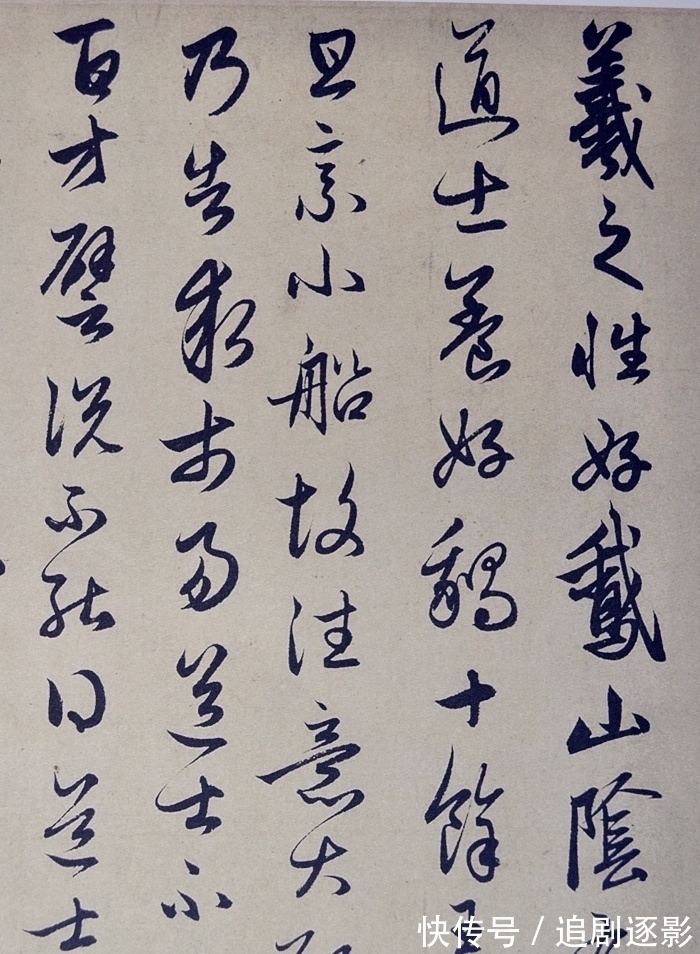 羲之性好鵞山陰
道士養好鵝十餘
旦乘小船故往意大
乃告求市易道士不
百方譬说不能得道士
快传号 / 追剧逐影